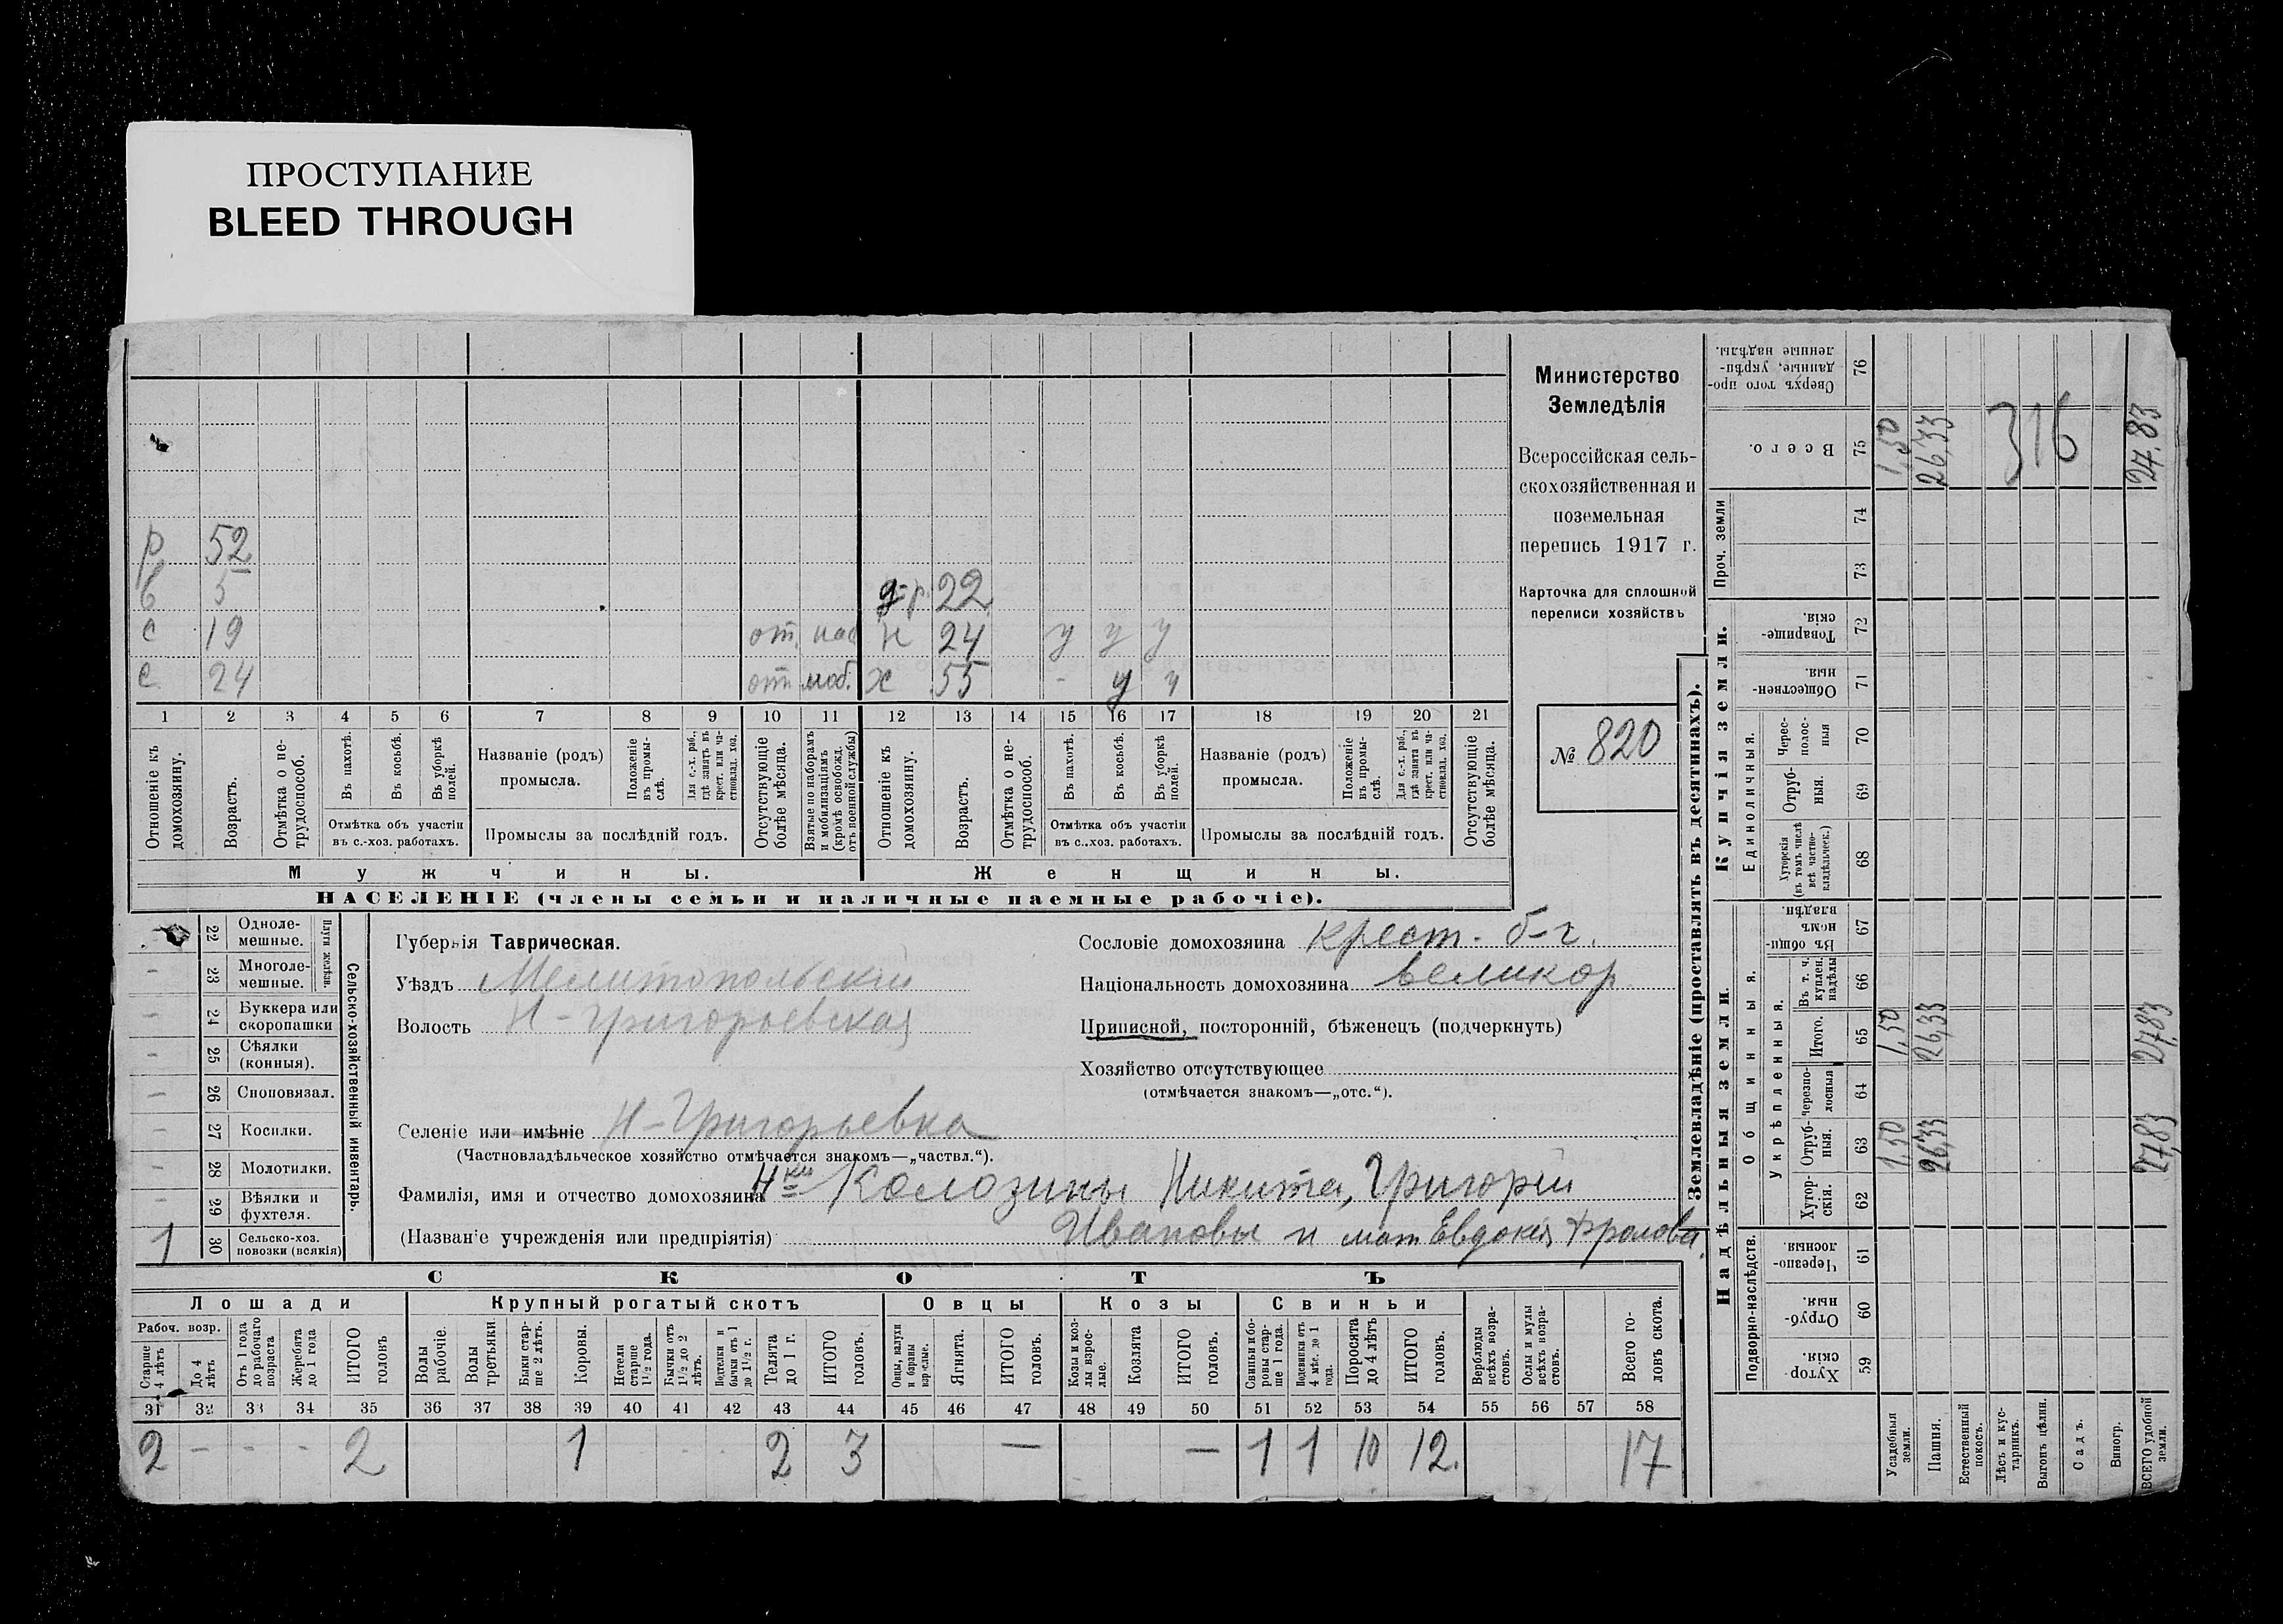 ПРОСТУПАНИЕ
BLEED THROUGH
Министерство
Земледѣлія
Всероссійская сель-
скохозяйственная и
поземельная
перепись 1917 г.
Карточка для сплошной
переписи хозяйствъ
№ 820
р 52
5 д-р. 22
с 19 от. 24 у у у
с 24 отп моб. х 55 - у у
1 2 3 4 5 6 7 8 9 10 11 12 13 14 15 16 17 18 19 20 21
Отношеніе къ домохозяину.
Возрастъ.
Отмѣтка о не-трудоспособ.
Въ пахотѣ.
Въ косьбѣ.
Въ уборкѣ полей.
Отмѣтка объ участіи
въ с.-хоз. работахъ.
Названіе (родъ)
промысла.
Положеніе въ промы-слѣ.
Для с.-х. раб., гдѣ занятъ въ крест. или ча-стновлад. хоз.
Промыслы за послѣдній годъ.
Отсутствующіе болѣе мѣсяца.
Взятые по наборамъ и мобилизаціямъ (кромѣ освобожд. отъ военной службы)
Отношеніе къ домохозяину.
Возрастъ.
Отмѣтка о не-трудоспособ.
Въ пахотѣ.
Въ косьбѣ.
Въ уборкѣ полей.
Отмѣтка объ участіи
въ с..хоз. работахъ.
Названіе (родъ)
промысла.
Положеніе въ промы-слѣ.
Для с.-х. раб., гдѣ занята въ крест. или ча-стновлад. хоз.
Промыслы за послѣдній годъ.
Отсутствующіе болѣе мѣсяца.
Мужчины. Женщины.
НАСЕЛЕНІЕ (члены семьи и наличные наемные рабочіе).
Сельско-хозяйственный инвентарь.
Плуги желѣзн.
22 Одноле-мешные.
- 23 Многоле-мешные.
- 24 Буккера или скоропашки
- 25 Сѣялки (конныя).
- 26 Сноповязал.
- 27 Косилки.
- 28 Молотилки.
- 29 Вѣялки и фухтеля.
1 30 Сельско-хоз. повозки (всякія)
Губернія Таврическая.
Уѣздъ Мелитопольскій
Волость Н-Григорьевская
Селеніе или имѣніе Н-Григорьевка
(Частновладѣльческое хозяйство отмѣчается знакомъ—„частвл.“).
Фамилія, имя и отчество домохозяина Н-ки Колозины Никита, Григорій
(Названіе учрежденія или предпріятія) Ивановы и мат Евдокія Фролова.
Сословіе домохозяина крест. б-г.
Національность домохозяина великор
Приписной, посторонній, бѣженецъ (подчеркнуть)
Хозяйство отсутствующее
(отмѣчается знакомъ—„отс.“).
СКОТЪ
Лошади Крупный рогатый скотъ Овцы Козы Свиньи
Рабоч. возр.
Старше 4 лѣтъ
До 4 лѣтъ
Отъ 1 года до рабочаго возраста
Жеребята до 1 года
ИТОГО головъ
Волы рабочіе.
Волы третьяки.
Быки стар-ше 2 лѣтъ.
Коровы.
Нетели старше 1½ года.
Бычки отъ 1½ до 2 лѣтъ.
Подтелки и бычки отъ 1 до 1½ г.
Телята до 1 г.
ИТОГО головъ.
Овцы, валухи и бараны взрослые.
Ягнята.
ИТОГО головъ.
Козы и коз-лы взрос-лые.
Козлята
ИТОГО головъ.
Свиньи и бо-ровы стар-ше 1 года.
Подсвинки отъ 4 мѣс. до 1 года.
Поросята до 4 лѣтъ
ИТОГО головъ.
Верблюды всѣхъ возра-стовъ.
Ослы и мулы всѣхъ возра-стовъ.
Всего го-ловъ скота.
31 32 33 34 35 36 37 38 39 40 41 42 43 44 45 46 47 48 49 50 51 52 53 54 55 56 57 58
2 - - - 2 1 - - 2 3 — — 1 1 10 12. 17
Землевладѣніе (проставлять въ десятинахъ).
Надѣльныя земли. Купчія земли. Проч. земли
Подворно-наслѣдств.
Общинныя.
Укрѣпленныя.
Единоличныя.
Хутор-скія. 59
Отруб-ныя. 60
Черезпо-лосныя. 61
Хутор-скія. 62
Отруб-ныя. 63
Черезпо-лосныя 64
Итого. 65
Въ т. ч. куплен. надѣлы 66
Въ общи-номъ владѣн. 67
Хуторскія (въ томъ числѣ всѣ частно-владѣльческ.) 68
Отруб-ныя. 69
Черес-полос-ныя 70
Обществен-ныя. 71
Товарище-скія. 72
73
74
Всего. 75
Сверхъ того про-данные, укрѣп-ленные надѣлы. 76
Усадебныя земли. 1,50 1,50 1,50
Пашня. 26,33 26,33 26,33
Естественный покосъ.
Лѣсъ и кус-тарникъ.
Выгонъ цѣлин.
Садъ.
Виногр.
ВСЕГО удобной земли. 27,83 27,83 27.83
316